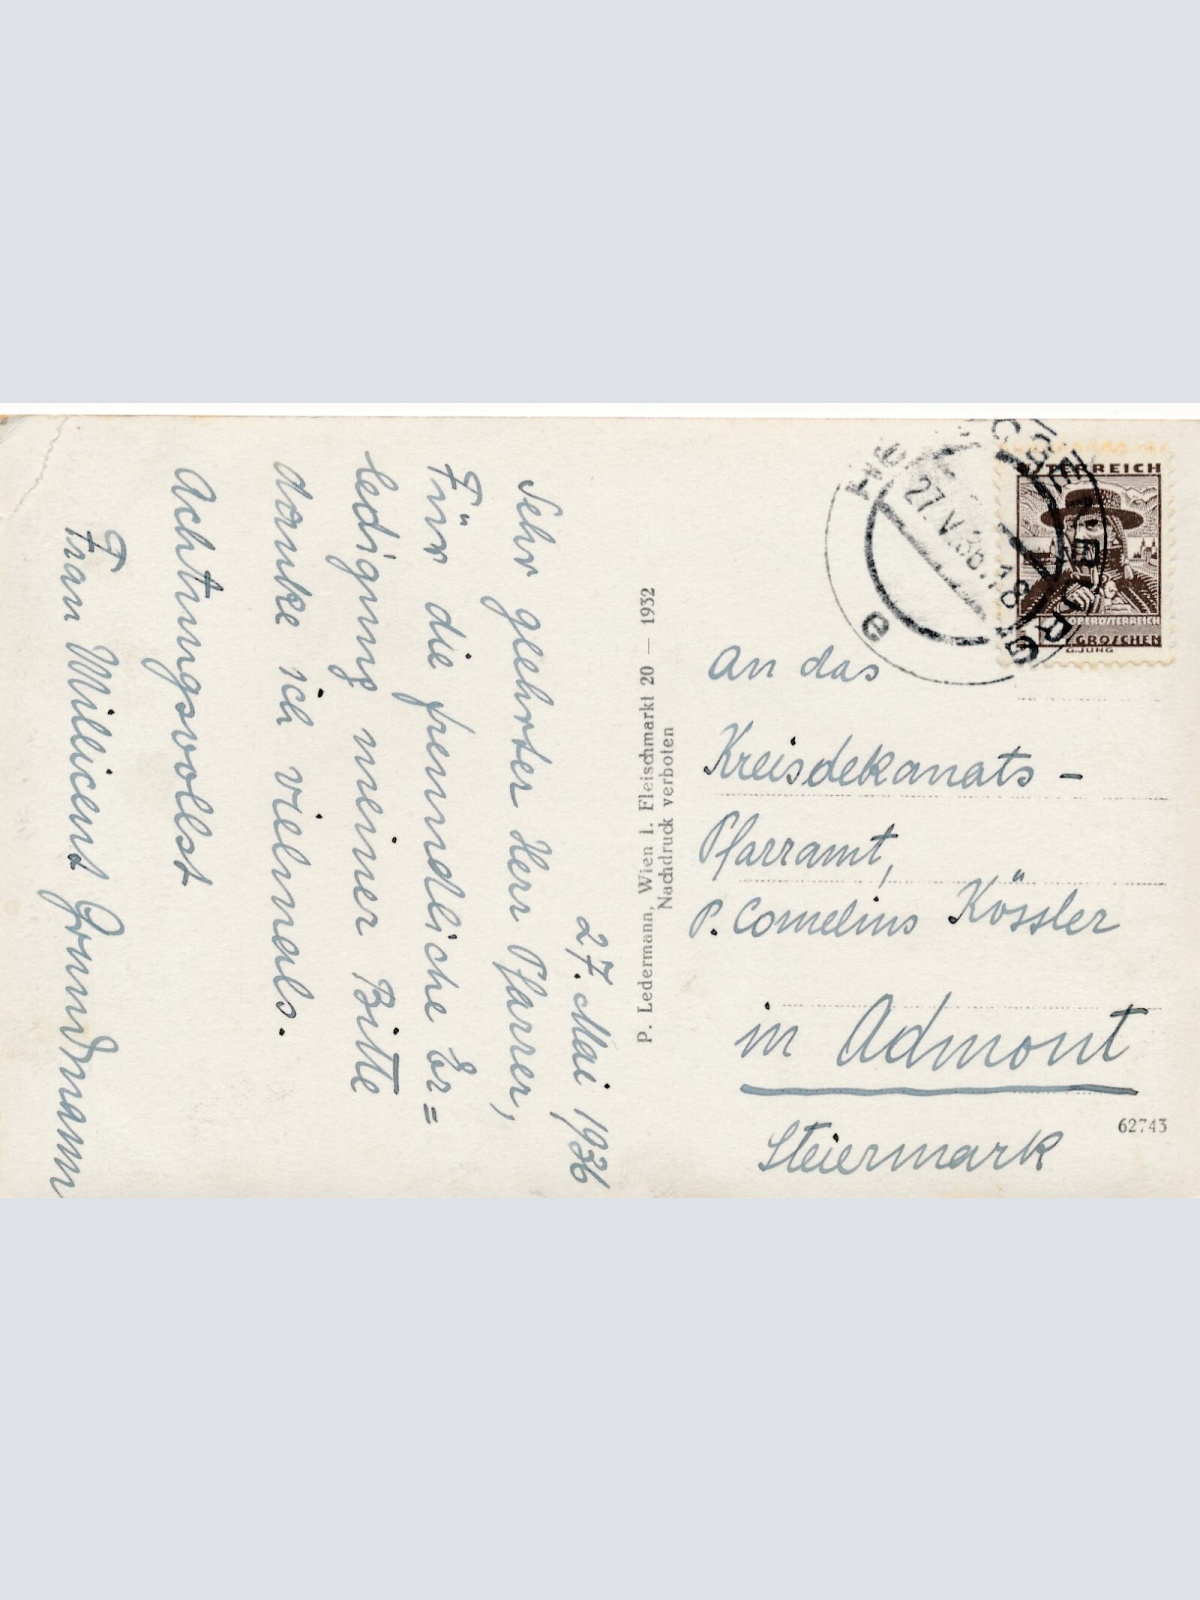 27. Mai 1936
Sehr geehrter Herr Pfarrer,
Für die freundliche Er=
ledigung meiner Bitte
danke ich vielmals.
Achtungsvollst
Frau Millicent Grundmann
P. Ledermann, Wien I. Fleischmarkt 20 — 1932
Nachdruck verboten
27.V.36.18
e
ÖSTERREICH
OBERÖSTERREICH
GROSCHEN
G.JUNG
An das
Kreisdekanats -
Pfarramt,
P. Cornelius Kössler
in Admont
Steiermark
62743